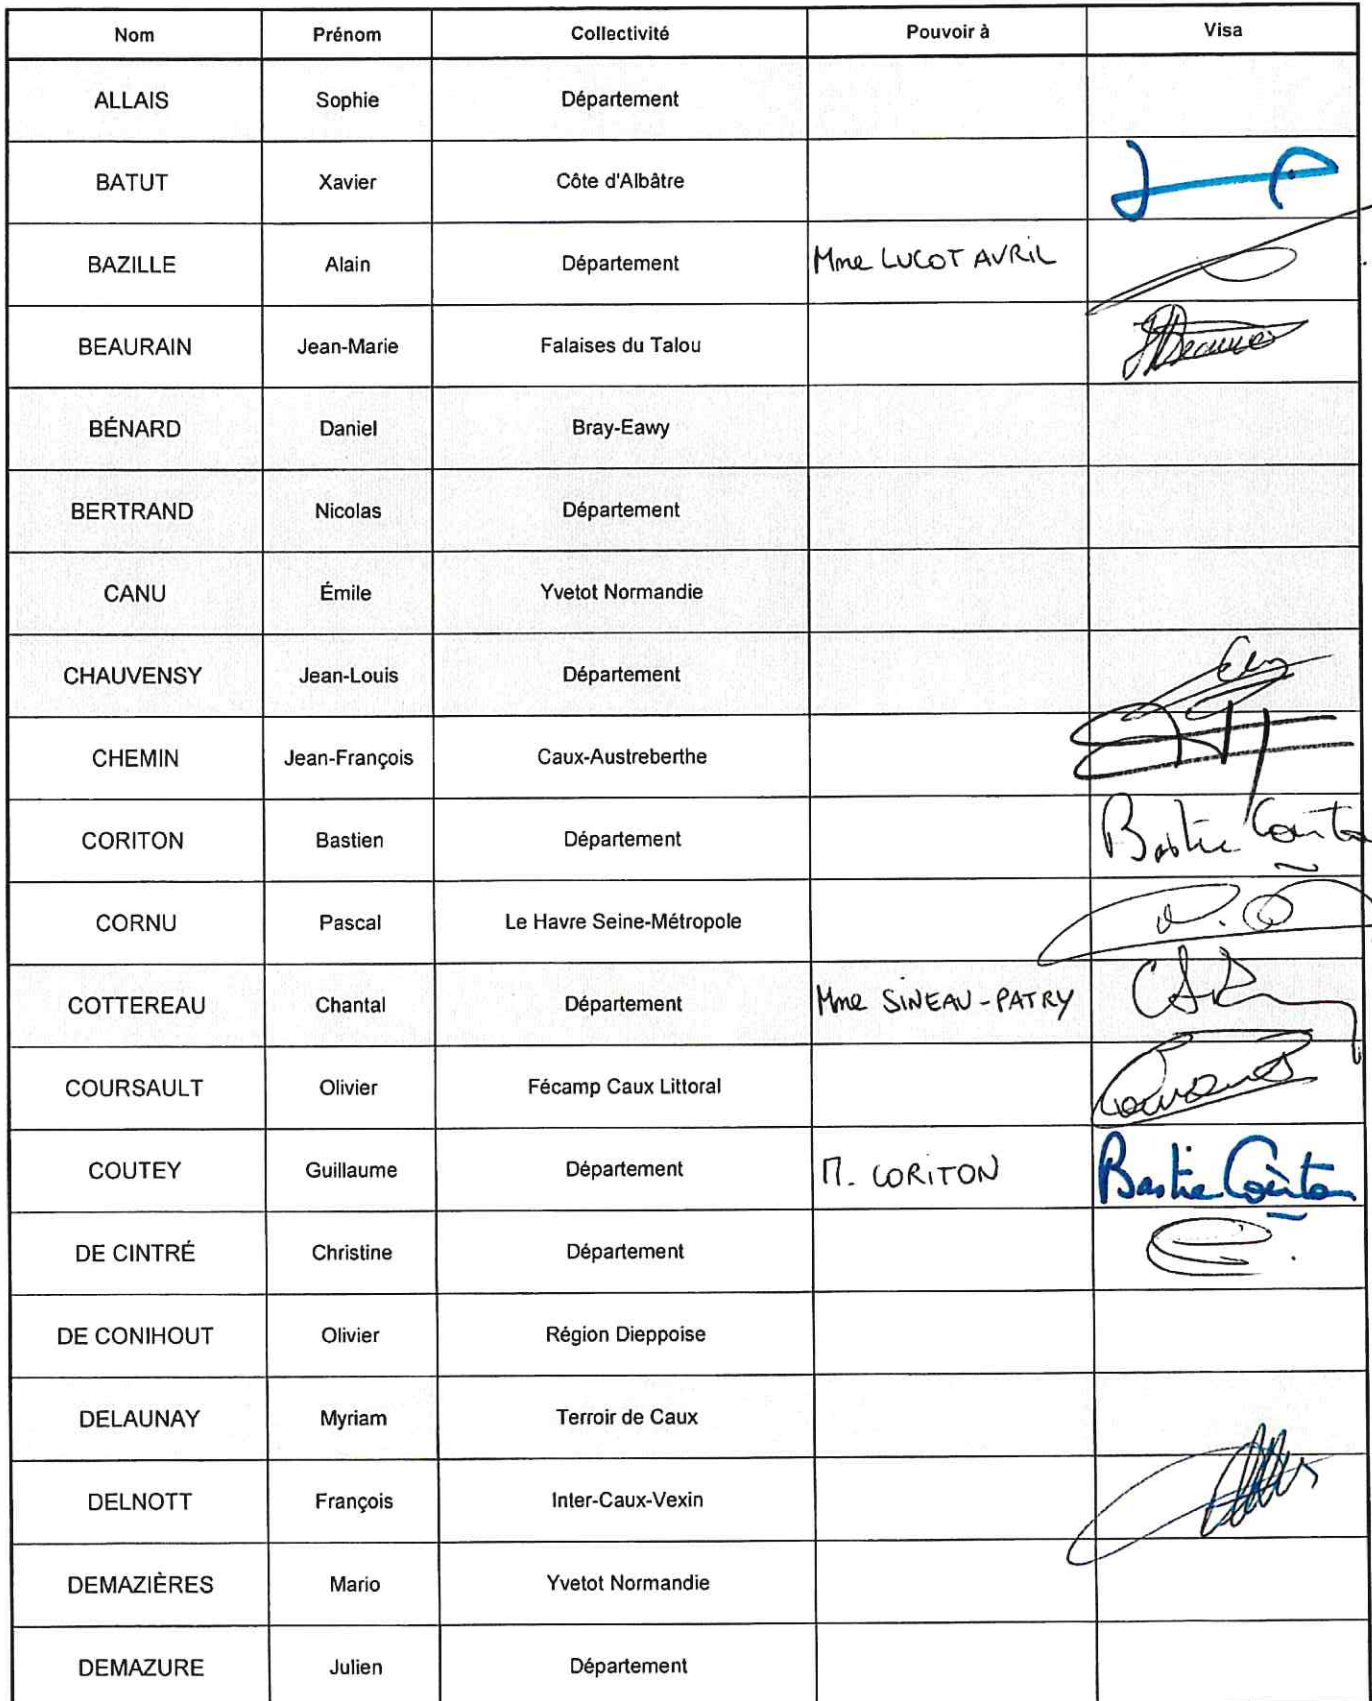 Nom Prénom Collectivité Pouvoir à Visa
ALLAIS Sophie Département
BATUT Xavier Côte d'Albâtre
BAZILLE Alain Département Mme LUCOT AVRIL
BEAURAIN Jean-Marie Falaises du Talou
BÉNARD Daniel Bray-Eawy
BERTRAND Nicolas Département
CANU Émile Yvetot Normandie
CHAUVENSY Jean-Louis Département
CHEMIN Jean-François Caux-Austreberthe
CORITON Bastien Département
CORNU Pascal Le Havre Seine-Métropole
COTTEREAU Chantal Département Mme SINEAU-PATRY
COURSAULT Olivier Fécamp Caux Littoral
COUTEY Guillaume Département M. CORITON
DE CINTRÉ Christine Département
DE CONIHOUT Olivier Région Dieppoise
DELAUNAY Myriam Terroir de Caux
DELNOTT François Inter-Caux-Vexin
DEMAZIÈRES Mario Yvetot Normandie
DEMAZURE Julien Département